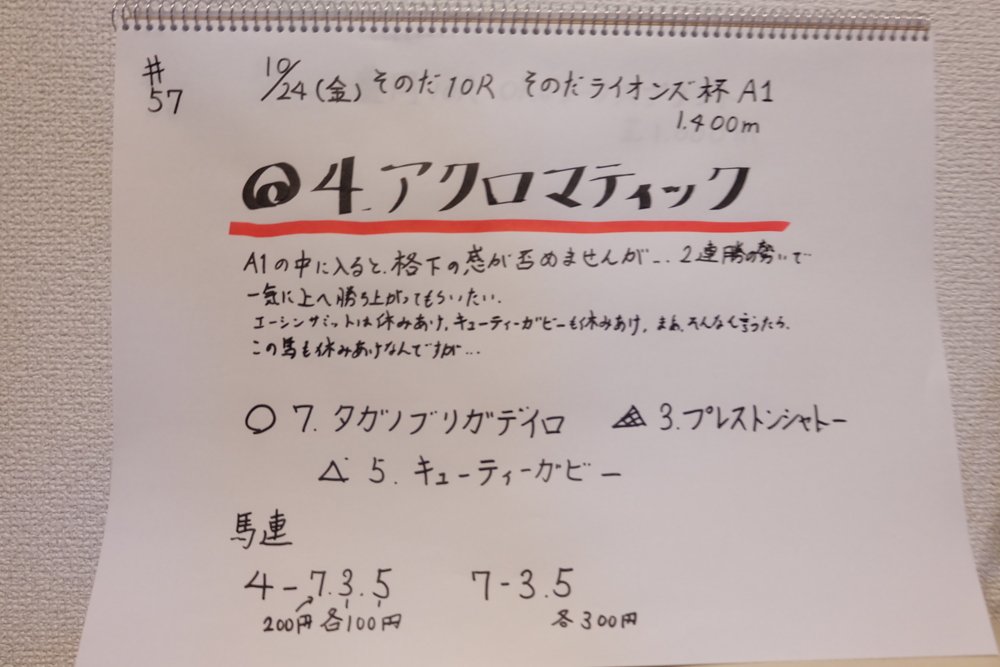 #57
10/24(金)そのだ10R そのだライオンズ杯 A1
1.400m
◎4.アクロマティック
A1の中に入ると、格下の感が否めませんが… 2連勝の勢いで
一気に上へ勝ち上がってもらいたい.
エーシンサミットは休みあけ, キューティーガビーも休みあけ, まあ、そんなく言うたら、
この馬も休みあけなんですが…
○ 7. タガノブリガデイロ ▲ 3.プレストンシャトー
△ 5. キューティーガビー
馬連
4-7.3.5 7-3.5
200円 各100円 各300円